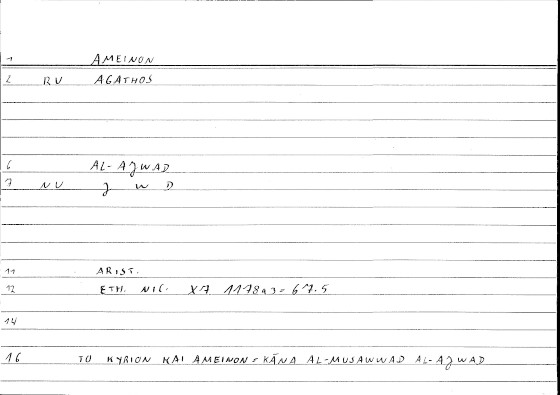 1 AMEINON
2 RU AGATHOS
6 AL-AJWAD
7 NU J W D
11 ARIST.
12 ETH. NIC. X7 1178a3 = 67.5
14
16 TO KYRION KAI AMEINON = KĀNA AL-MUSAWWAD AL-AJWAD